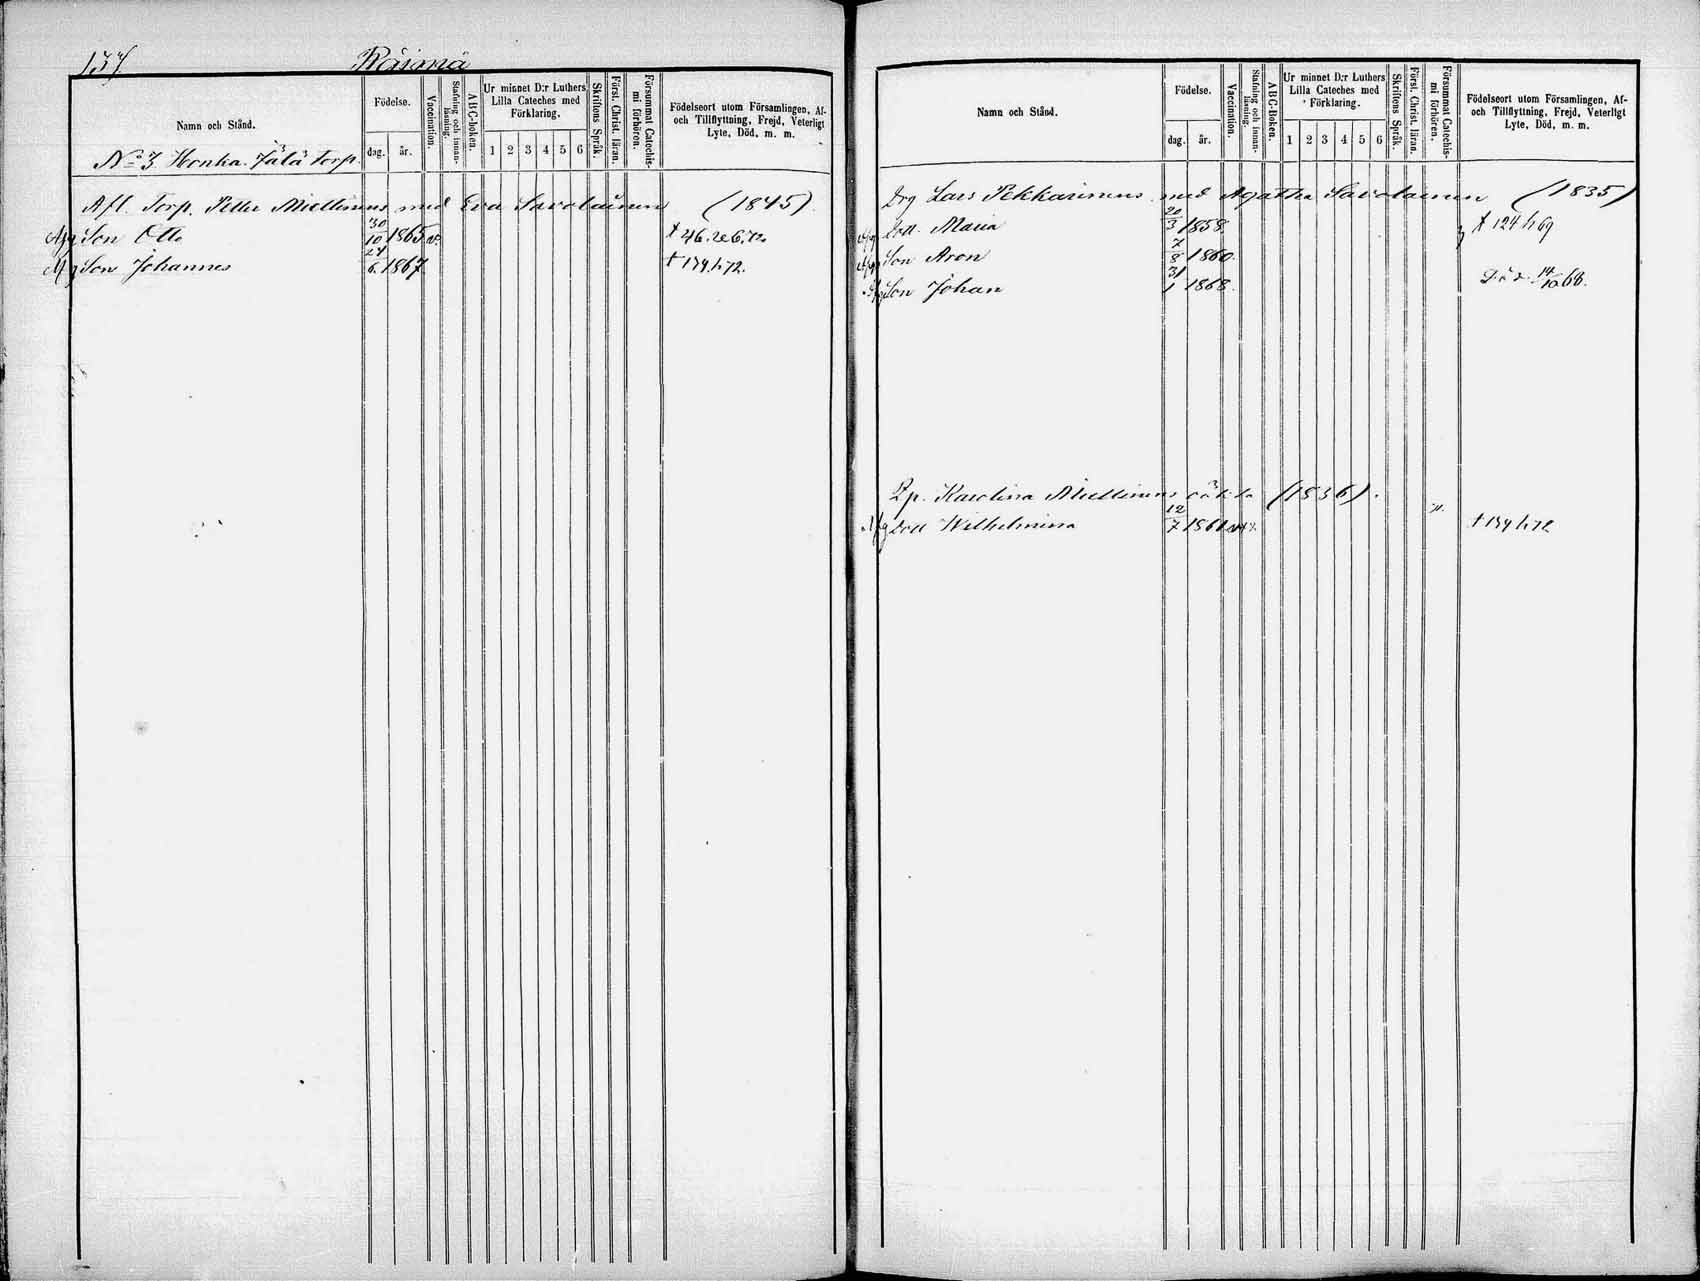 137.
Räimä
Namn och Stånd.
Födelse.
dag.
år.
Vaccination.
Stafning och innanläsning.
ABC-boken.
Ur minnet D:r Luthers
Lilla Cateches med
Förklaring.
1 2 3 4 5 6
Skriftens Språk.
Först. Christ. läran.
Försummat Catechismi förhören.
Födelseort utom Församlingen, Af-
och Tillflyttning, Frejd, Veterligt
Lyte, Död, m. m.
No 3 Honka Jälä Torp.
Afl. Torp. Petter Miettinens med Eva Savolainen (1845)
Son Otto 30/10 1865 v.
Son Johannes 24/6 1867 † 139/h 72.
Namn och Stånd.
Födelse.
dag.
år.
Vaccination.
Stafning och innanläsning.
ABC-Boken.
Ur minnet D:r Luthers
Lilla Cateches med
Förklaring.
1 2 3 4 5 6
Skriftens Språk.
Först. Christ. läran.
Försummat Catechismi förhören.
Födelseort utom Församlingen, Af-
och Tillflyttning, Frejd, Veterligt
Lyte, Död, m. m.
Drg Lars Pekkarinens med Agatha Savolainen (1835)
Dott. Maria 20/3 1858. † 124/h 69
Son Aron 7/8 1860.
Son Johan 31/1 1868. Död 14/10 68.
Karolina Miettinens oäkta (1836).
Dott Wilhelmina 12/7 1861 † 139/h 72